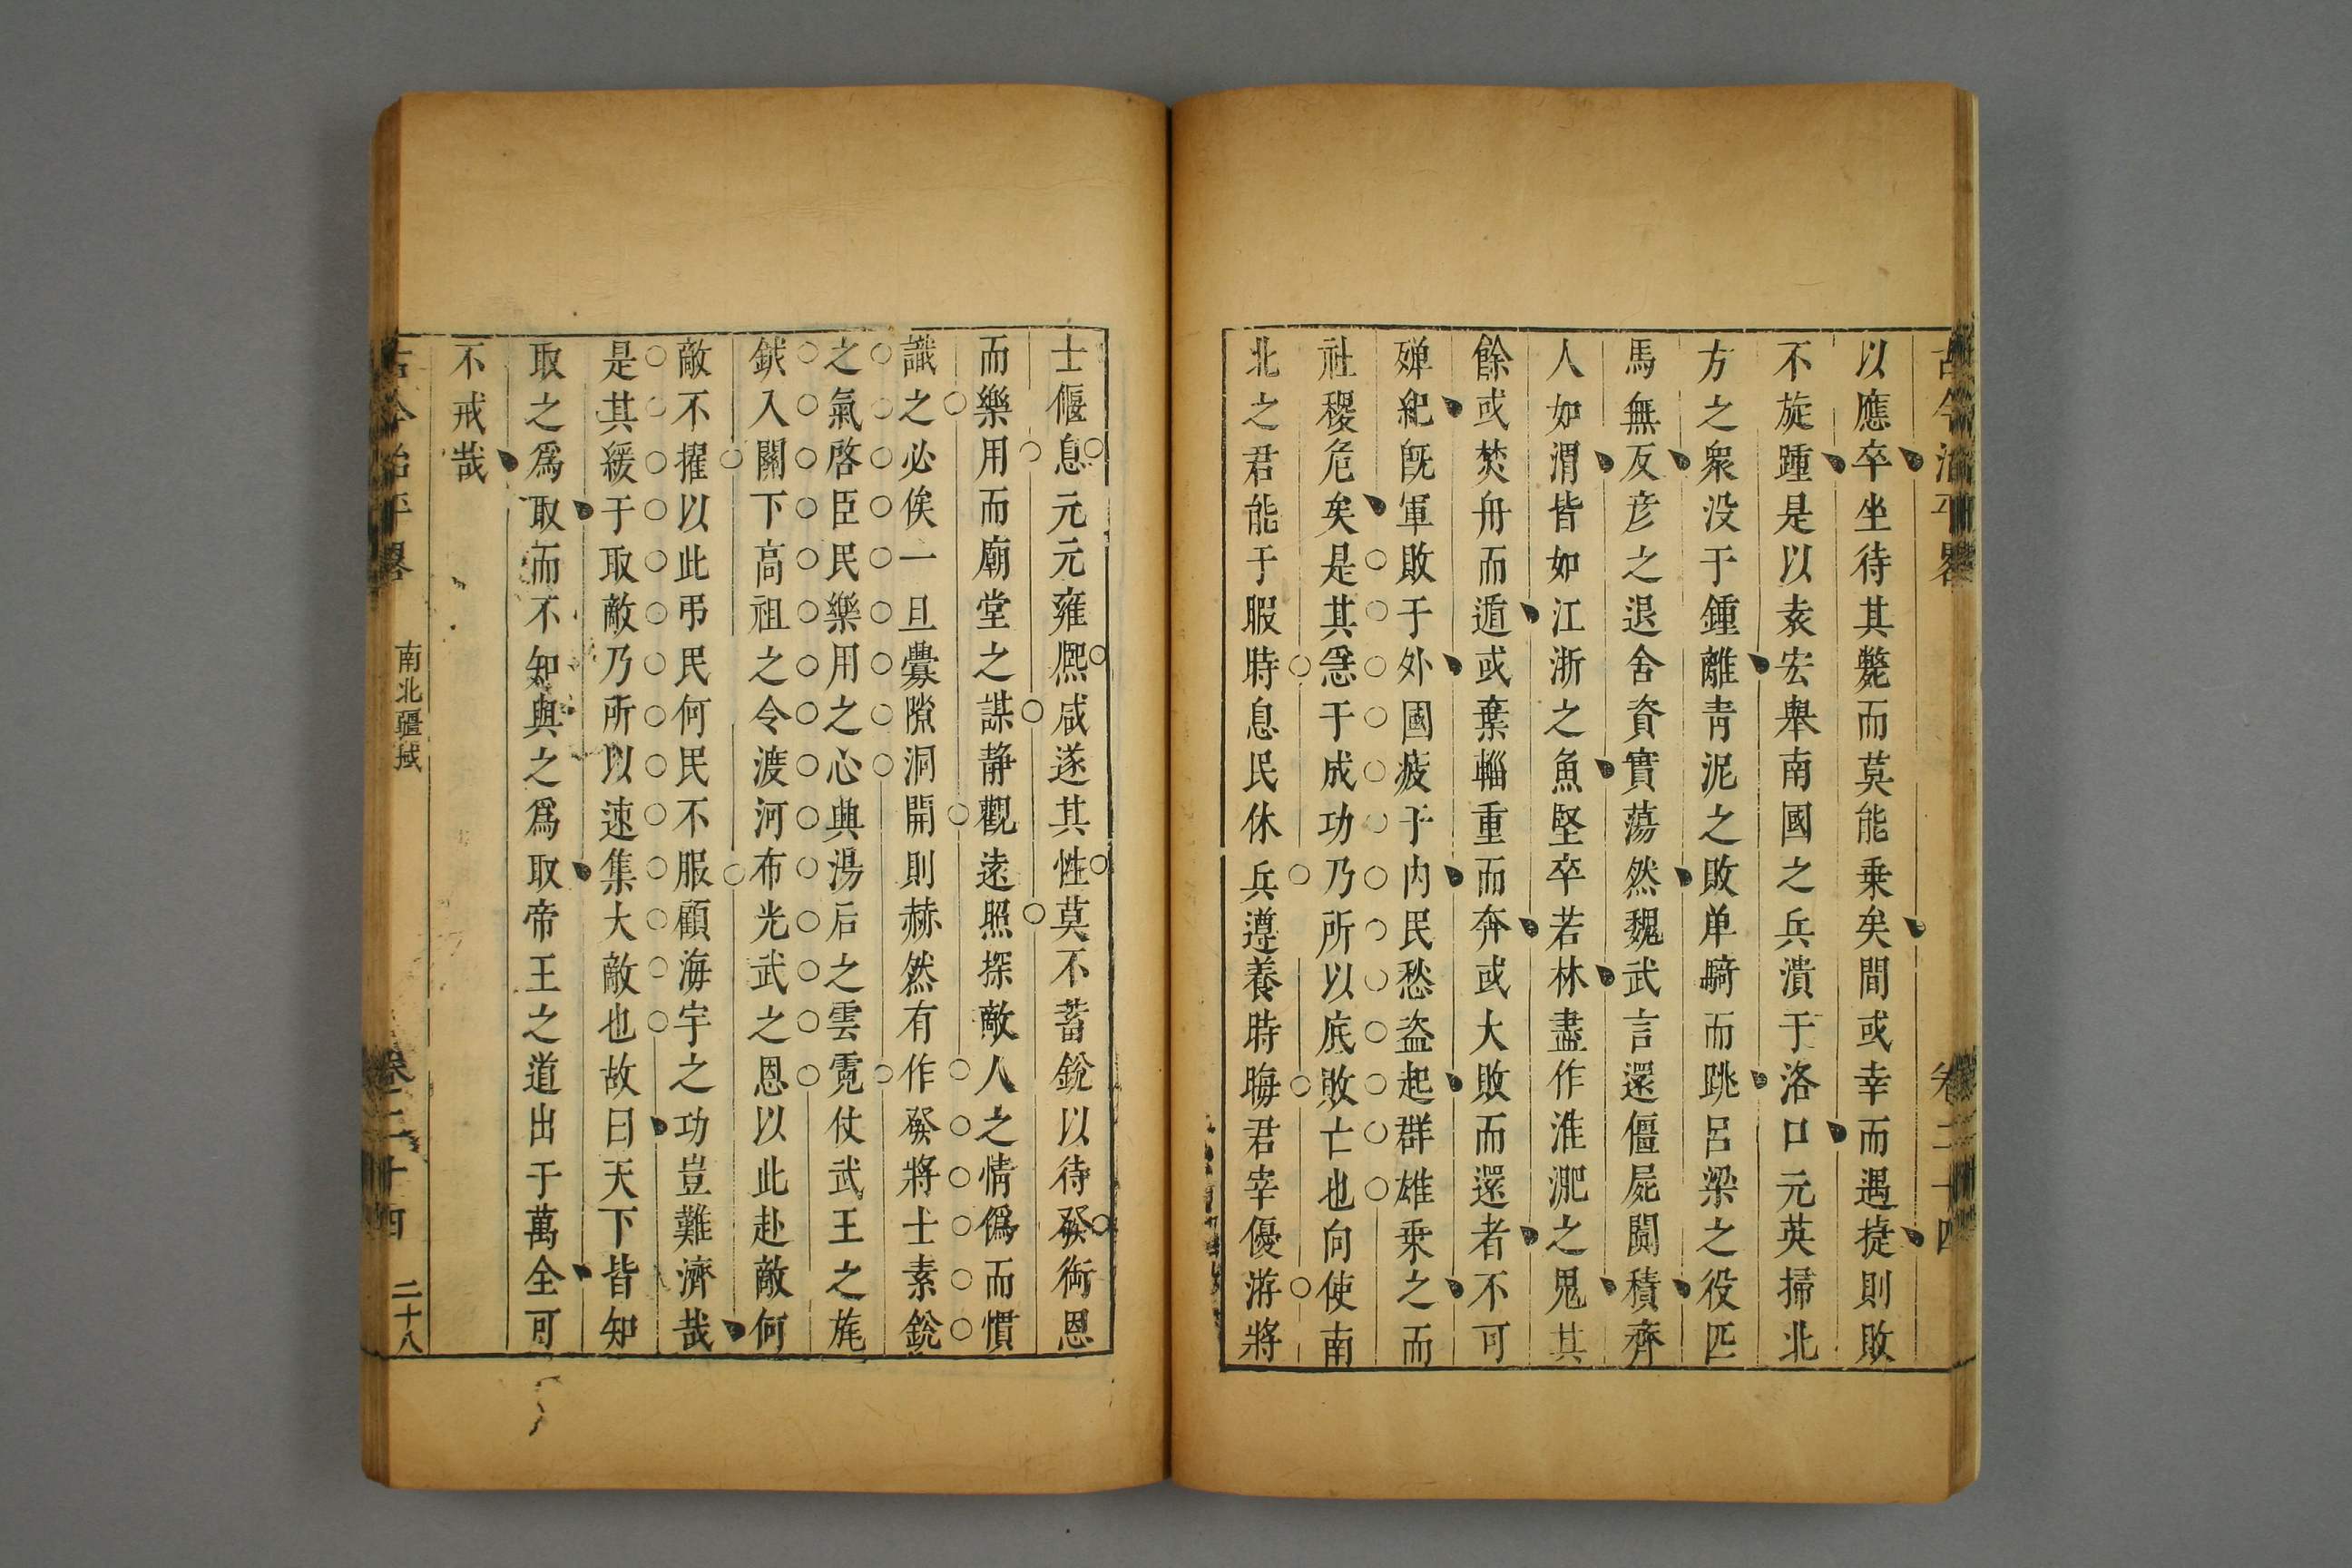 以應卒坐待其斃而莫能乗矣間或幸而遇捷則敗
不旋踵是以袁宏舉南國之兵潰于洛口元英掃北
方之衆没于鍾離靑泥之敗单騎而跳呂梁之役匹
馬無反彦之退舍資實蕩然魏武言還僵屍闐積齊
人如渭皆如江浙之魚堅卒若林盡作淮淝之鬼其
餘或焚舟而遁或棄輜重而奔或大敗而還者不可
殫紀旣軍敗于外國疲于内民愁盗起群雄乗之而
社稷危矣是其急于成功乃所以底敗亡也向使南
北之君能于暇時息民休兵遵養時晦君宰優游將
士偃息元元雍熙咸遂其性莫不蓄銳以待發衔恩
而樂用而廟堂之謀静觀遠照探敵人之情僞而慣
識之必俟一旦釁隙洞開則赫然有作發將士素銳
之氣啓臣民樂用之心典湯后之雲霓仗武王之旄
鉞入關下高祖之令渡河布光武之恩以此赴敵何
敵不摧以此弔民何民不服顧海宇之功豈難濟哉
是其緩于取敵乃所以速集大敵也故曰天下皆知
取之爲取而不知與之爲取帝王之道出于萬全可
不戒哉
古今治平畧 南北疆域 卷二十四 二十八